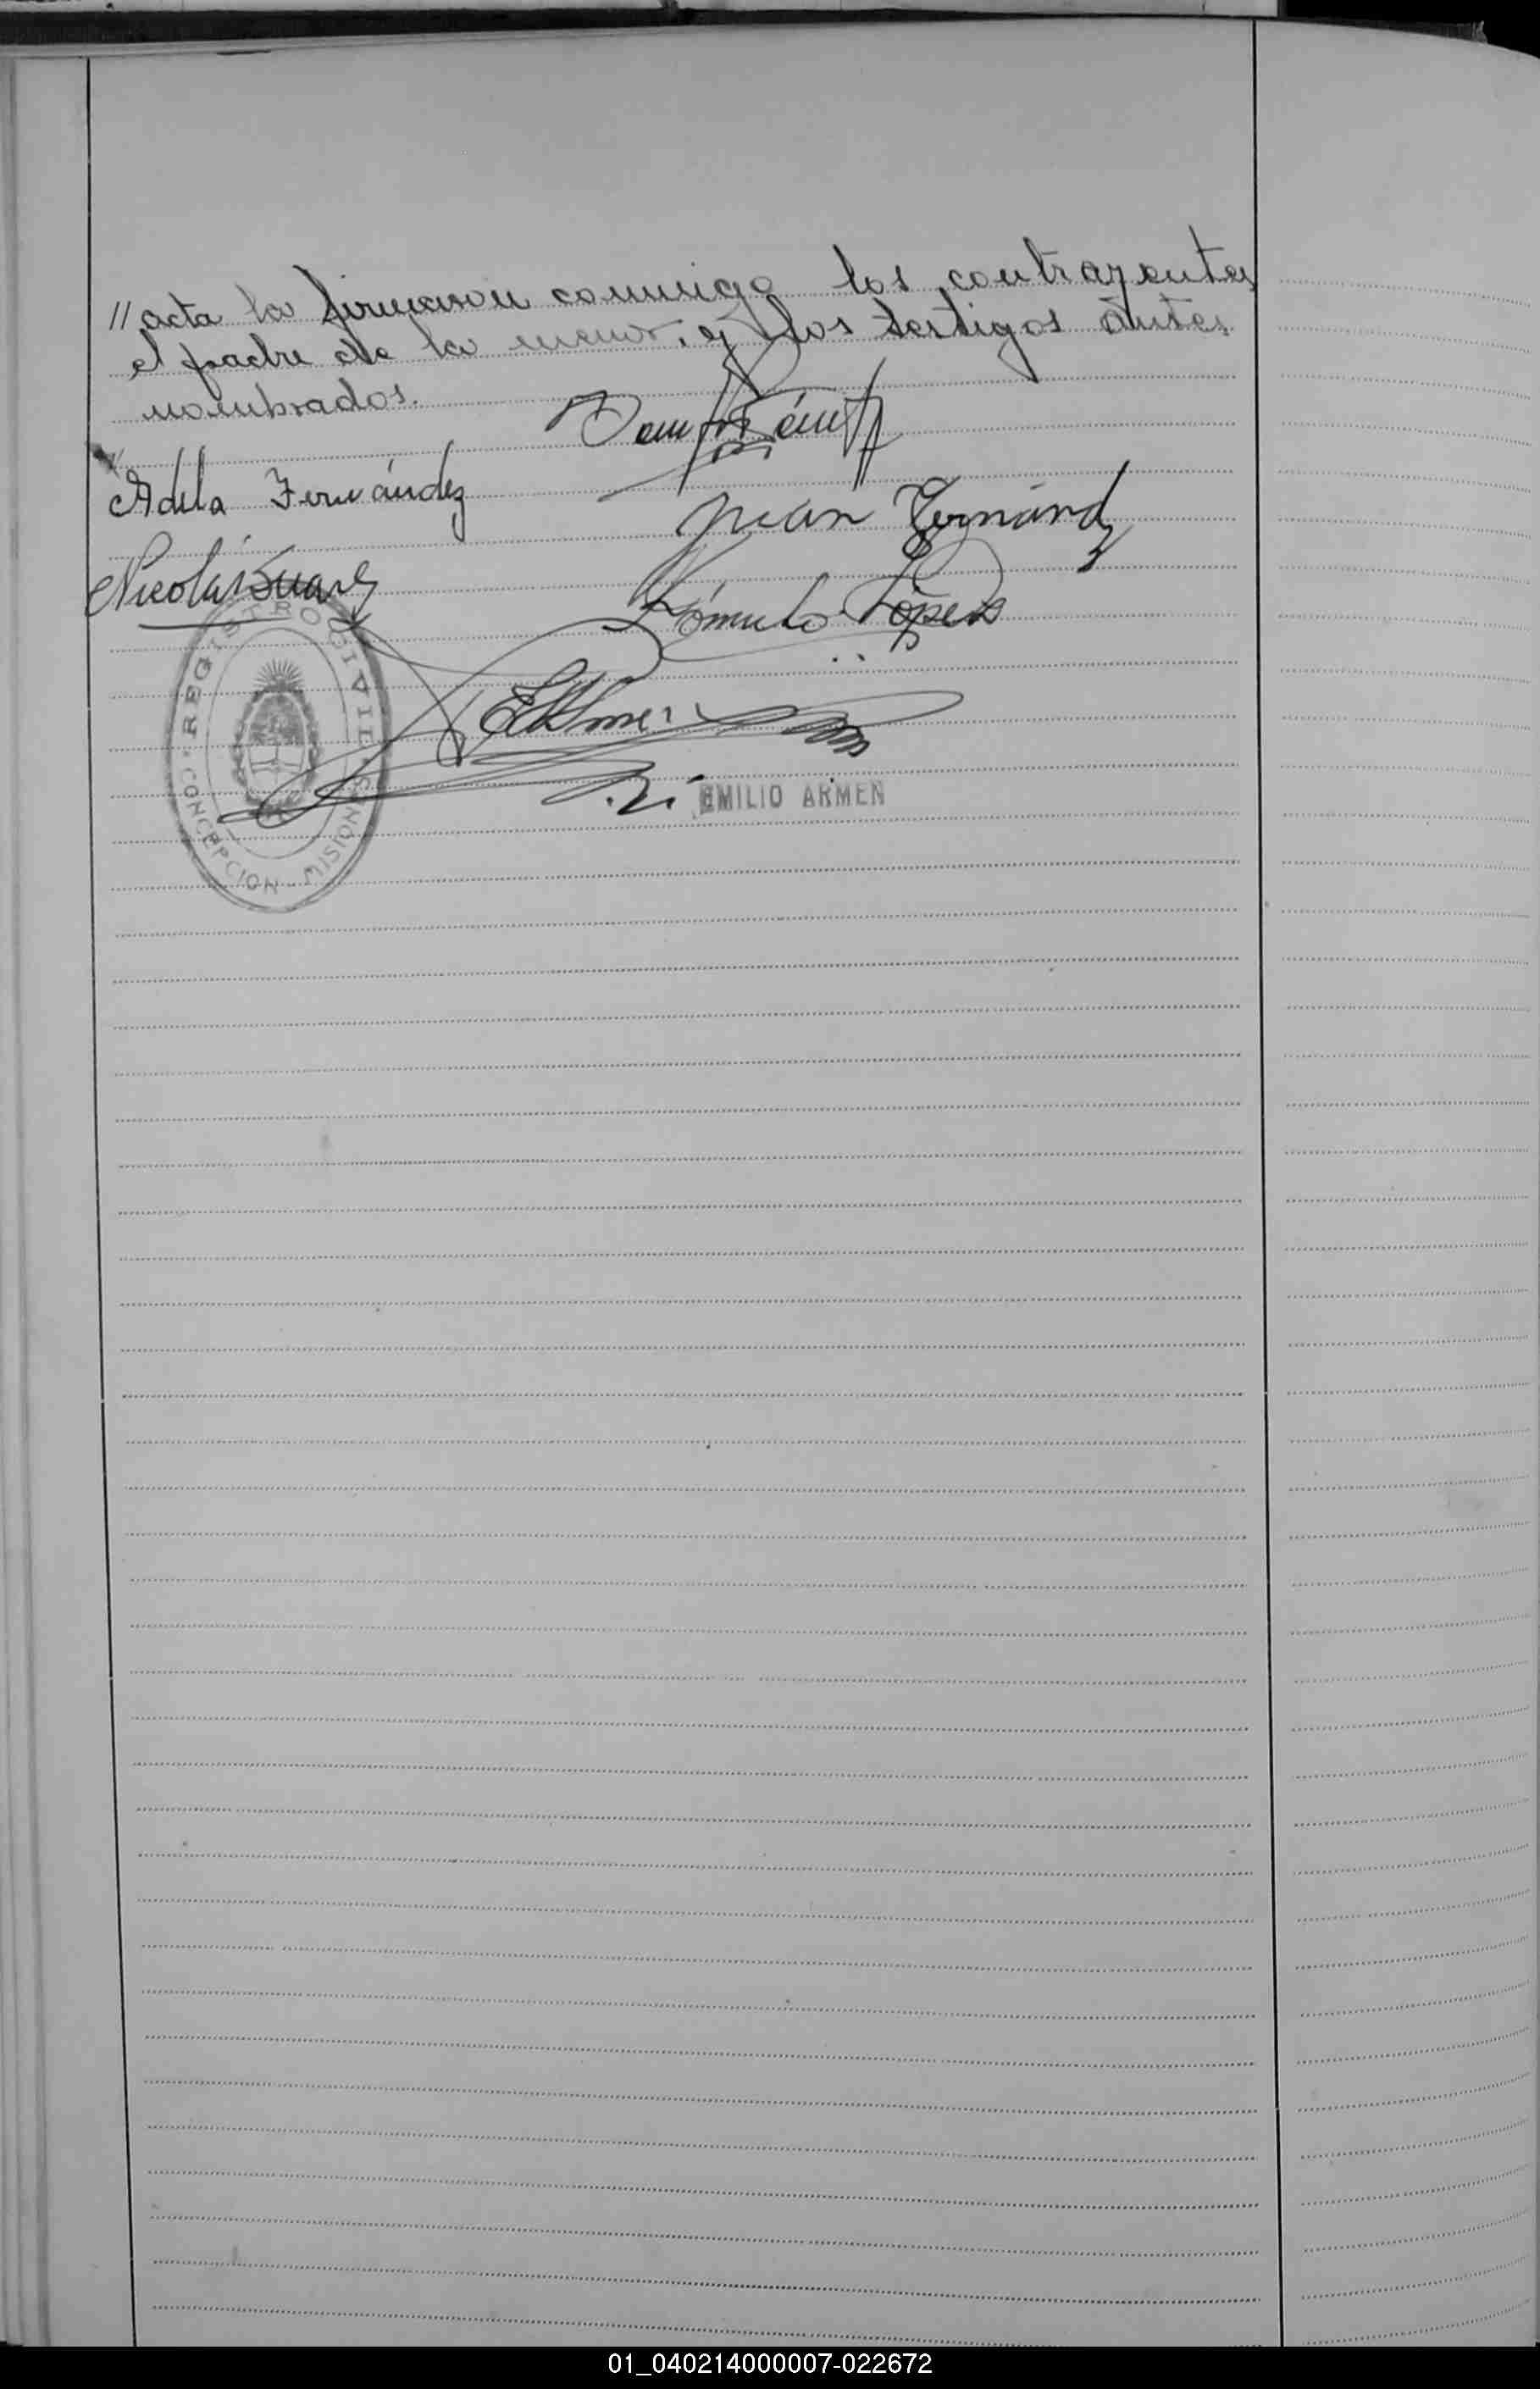 // acta la firmaron conmigo los contrayentes
el padre de la menor, y los testigos antes
nombrados.
Adela Fernández
Juan Fernández
Nicolás Suarez
Rómulo López
REGISTRO CIVIL
CONCEPCION - MISIONES
EMILIO ARMEN
01_040214000007-022672